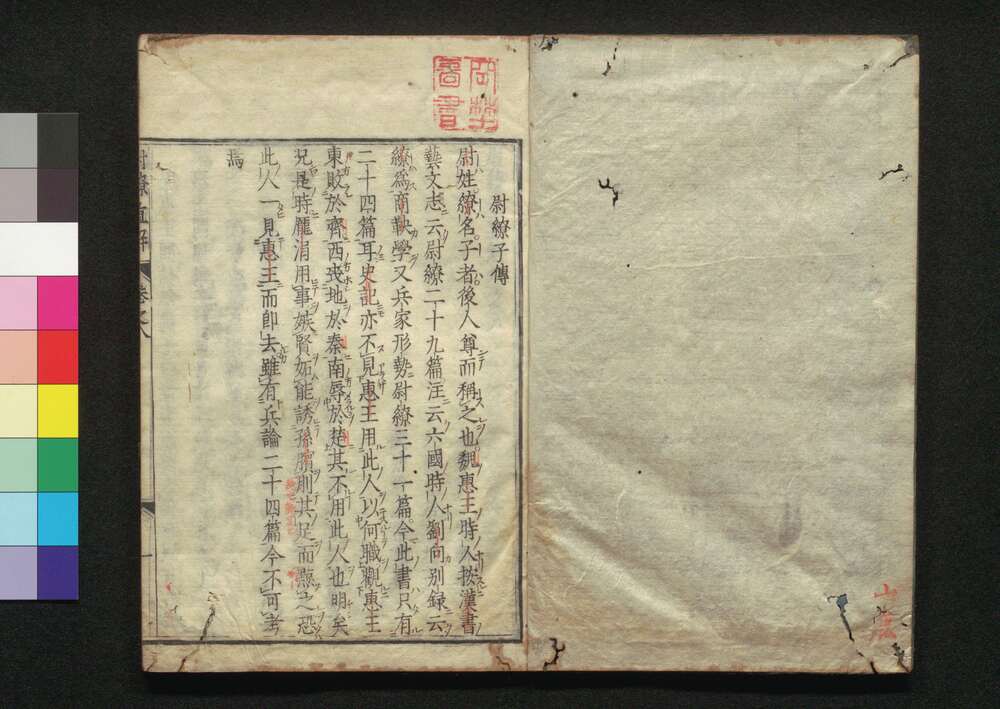 尉繚子傳
尉姓繚名子者後人尊而稱之也魏惠王時人按漢書
藝文志云尉繚二十九篇注云六國時人劉向別録云
繚爲商鞅學又兵家形勢尉繚三十一篇今此書只有
二十四篇耳史記亦不見惠王用此人以何職觀惠王
東敗於齊西喪地於秦南辱於楚其不用此人也明矣
况是時龐涓用事嫉賢妬能誘孫臏刖其足而黥之恐
此人一見惠王而即去雖有兵論二十四篇今不可考
焉
尉繚直解 卷之八